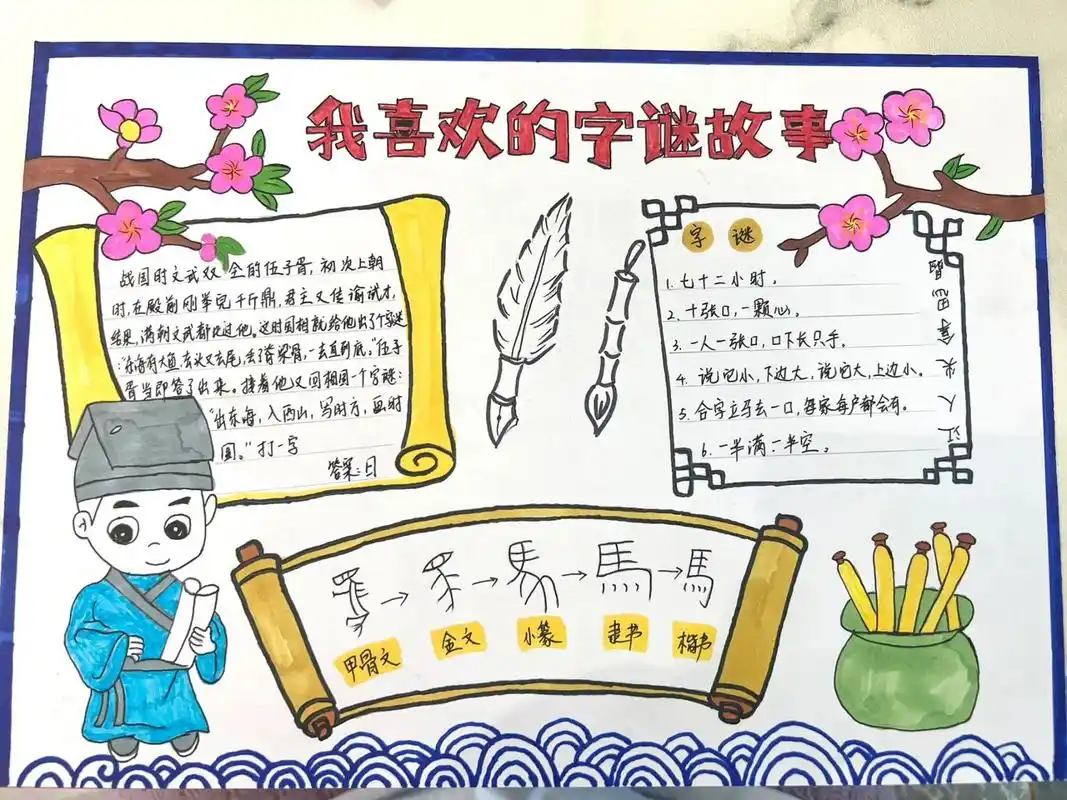 我喜欢的字谜故事
战国时文武双全的伍子胥,初次上朝
时,在殿前刚举完千斤鼎,君主又传谕试才,
结果,满朝文武都比过他。这时国相就给他出了个字谜
:"东海有大鱼,去头又去尾,去了脊梁骨,一去直到底。"伍子
胥当即答了出来。接着他又回相国一个字谜:
"出东海,入西山,写时方,画时
圆。"打一字
答案:日
字 谜
1. 七十二小时。
2. 十张口,一颗心。
3. 一人一张口,口下长只手。
4. 说它小,下边大,说它大,上边小。
5. 合字立马去一口,每家每户都会有。
6. 一半满一半空。
晶
思
拿
尖
人
江
甲骨文
金文
小篆
隶书
馬
楷书